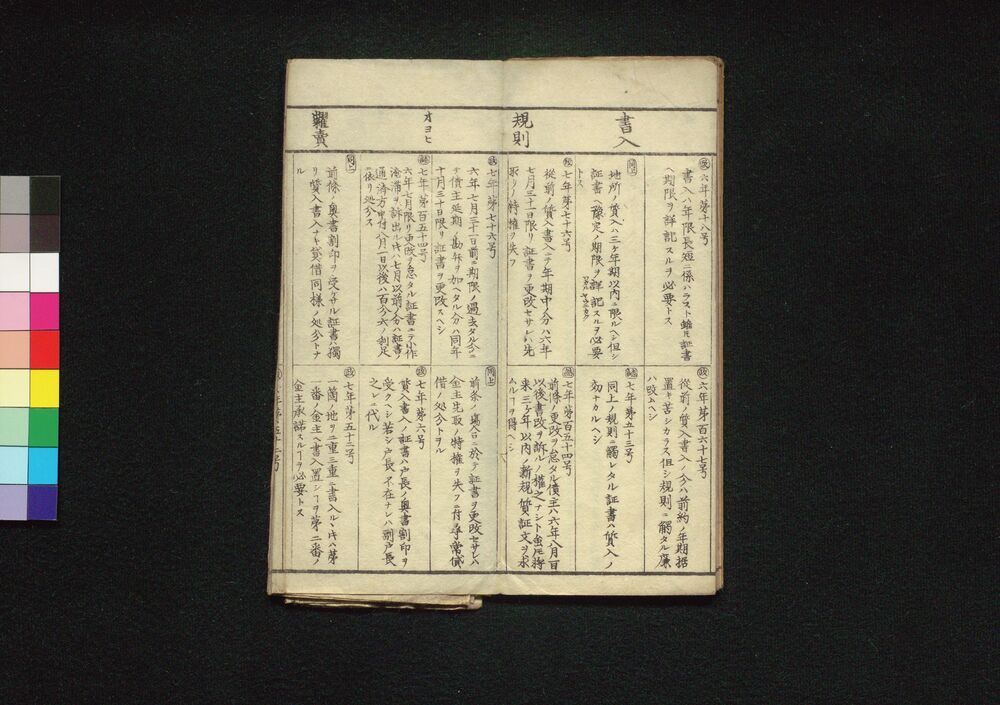 書入
規則
オヨヒ
糶賣
六年第十八号
書入ハ年限長短ニ係ハラスト雖𪜈証書
ヘ期限ヲ詳記スルヲ必要トス
同上
地所ノ質入ハ三ケ年期以内ニ限ルヘシ但シ
証書ヘ豫定ノ期限ヲ詳記スルヲ必要
トス
七年第七十六号
從前ノ質入書入ニテ年期中ノ分ハ六年
七月三十一日限リ証書ヲ更改セサレハ先
取リノ特権ヲ失フ
七年第七十六号
六年七月三十一日前ニ期限ノ過去タル分ニ
テ債主延期ノ勘弁ヲ加ヘタル分ハ同年
十月三十日限リ証書ヲ更改スヘシ
七年第百五十四号
六年七月限リ更改ヲ怠タル証書ニテ小作
滞ヲ訴出ル𪜈ハ七月以前ノ分ハ証書ノ
通済方申付八月一日以後ハ百分六ノ利足
ニ依リ処分ス
同上
前條ノ奥書割印ヲ受ケサル証書ハ獨
リ質入書入ナキ貸借同様ノ処分トナ
ル
六年第百六十七号
從前ノ質入書入ノ分ハ前約ノ年期据
置キ苦シカラス但シ規則ニ觸タル廉
ハ改ムヘシ
七年第五十三号
同上ノ規則ニ觸レタル証書ハ質入ノ
効ナカルヘシ
七年第百五十四号
前條ノ更改ヲ怠タル債主ハ六年八月一日
以後書改ヲ訴ルノ権之ナシト雖𪜈将
来三ケ年以内ノ新規質証文ヲ求
ムルヿヲ得ヘシ
同上
前条ノ場合ニ於テ証書ヲ更改セサレハ
金主先取ノ特権ヲ失フニ付尋常貸
借ノ処分トナル
七年第六号
質入書入ノ証書ハ戸長ノ奥書割印ヲ
受クヘシ若シ戸長不在ナレハ副戸長
之レニ代ル
七年第五十二号
一箇ノ地ヲ二重三重ニ書入ルヽキハ第
一番ノ金主ヘ書入置シヿヲ第二番ノ
金主承諾スルヿヲ必要トス